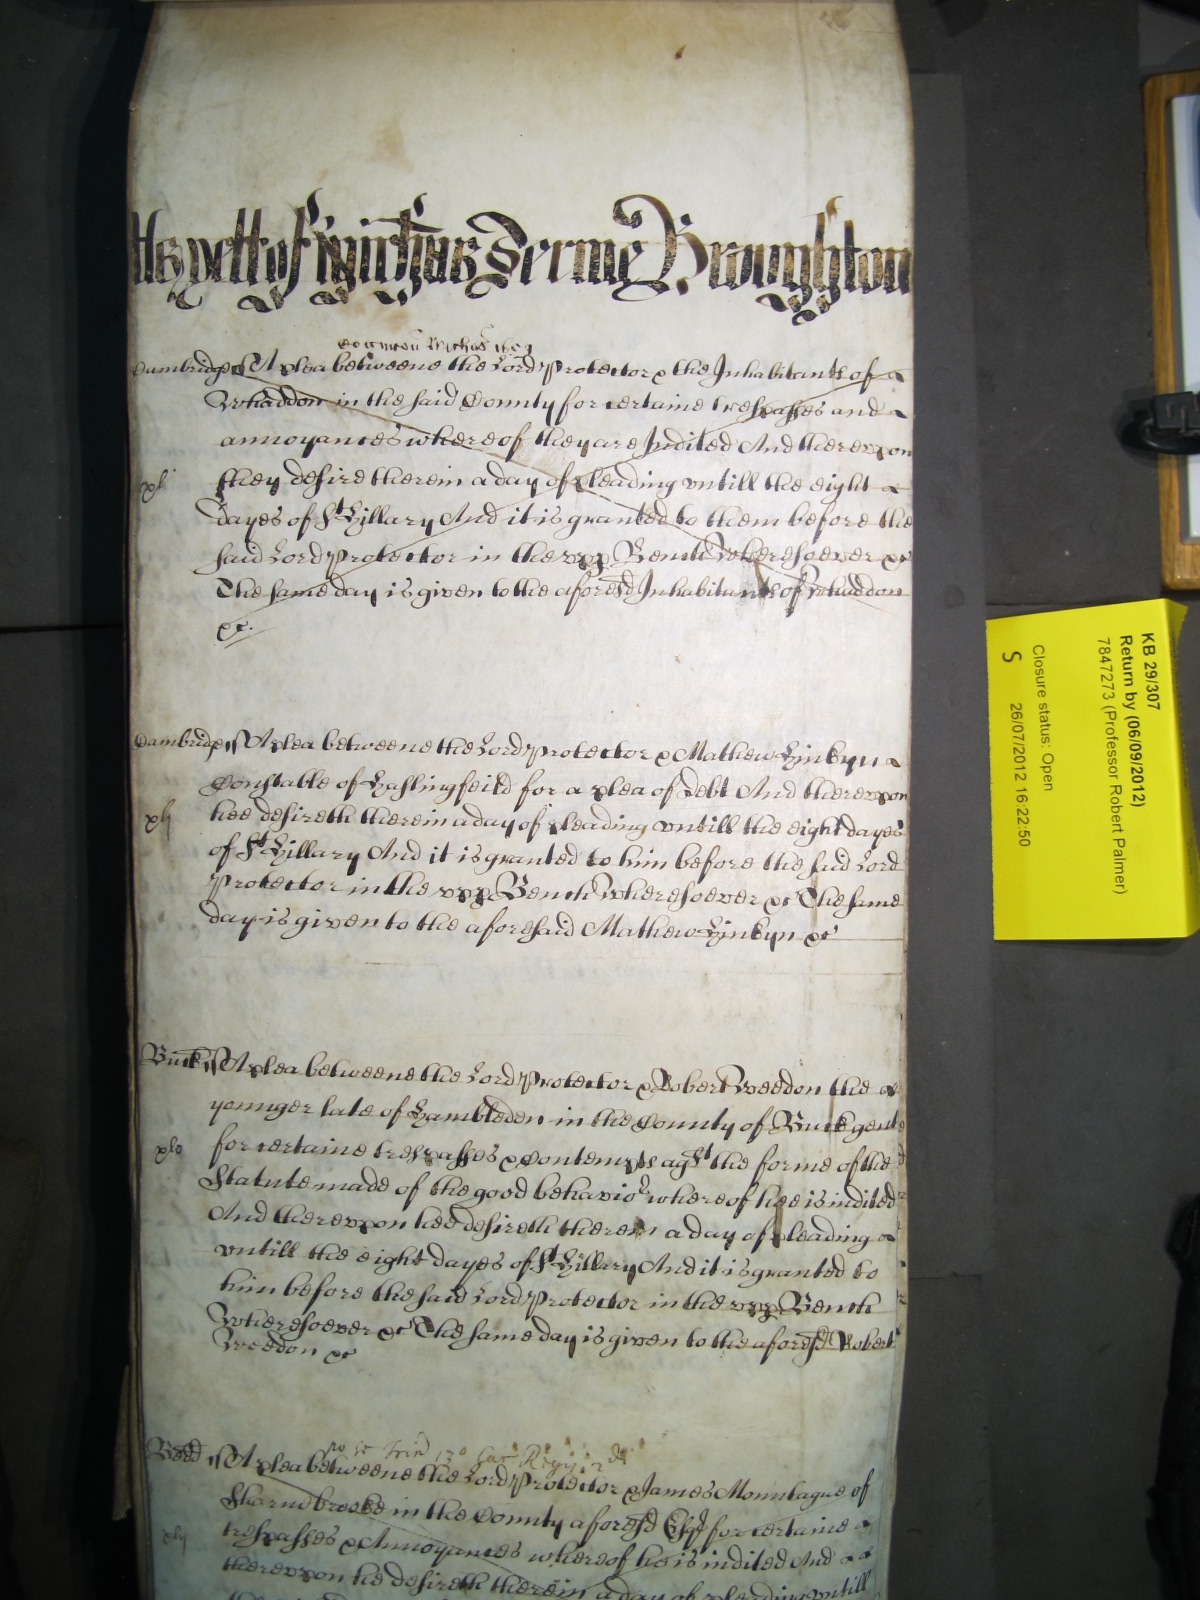 yett of Michas Terme Broughton
Michas 1659
Cambridge ss A plea betweene the Lord Protector & the Inhabitants of
Whaddon in the said County for certaine trespasses and
annoyances whereof they are Indited And thereupon
they desire therein a day of pleading untill the eight
dayes of St Hillary And it is granted to them before the
said Lord Protector in the upp Bench Wheresoever &c
The same day is given to the aforesd Inhabitants of Whaddon
&c.
Cambridge ss A plea betweene the Lord Protector & Mathew Linkyn
Constable of Haslingfeild for a plea of Debt And thereupon
hee desireth therein a day of pleading untill the eight dayes
of St Hillary And it is granted to him before the said Lord
Protector in the upp Bench Wheresoever &c The same
day is given to the aforesaid Mathew Linkyn &c
Buck ss A plea betweene the Lord Protector & Robert Weedon the
younger late of Hambleden in the County of Buck gent
for certaine trespasses & Contempts agst the forme of the
Statute made of the good behavior whereof hee is indited
And thereupon hee desireth therein a day of pleading
untill the eight dayes of St Hillary And it is granted to
him before the said Lord Protector in the upp Bench
Wheresoever &c The same day is given to the aforesd Robert
Weedon &c
Trin 13o Car Regis 2di
Bedd ss A plea betweene the Lord Protector & James Mountague of
Sharnebrooke in the County aforesd Esqr for certaine
trespasses & Annoyances whereof he is indited And
thereupon he desireth therein a day of pleading untill
KB 29/307
Return by (06/09/2012)
7847273 (Professor Robert Palmer)
Closure status: Open
S 26/07/2012 16:22:50